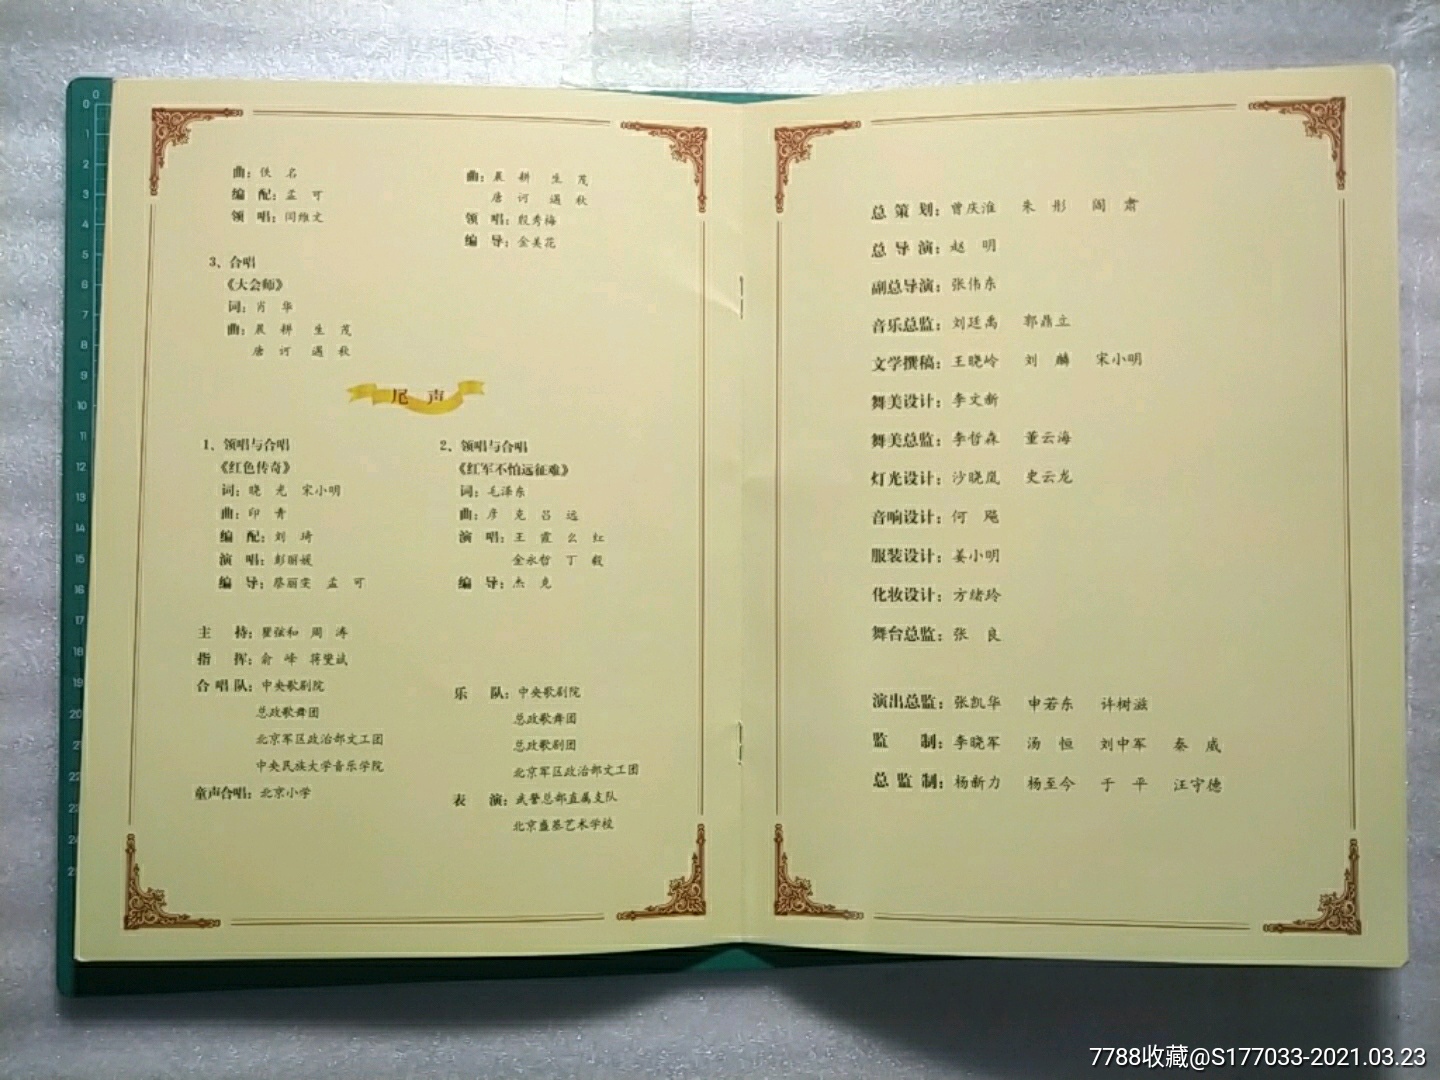 曲：佚 名
编 配：孟 可
领 唱：闫维文
3、合唱
《大会师》
词：肖 华
曲：晨 耕 生 茂
唐 诃 遇 秋
曲：晨 耕 生 茂
唐 诃 遇 秋
领 唱：殷秀梅
编 导：金美花
尾 声
1、领唱与合唱
《红色传奇》
词：晓 光 宋小明
曲：印 青
编 配：刘 琦
演 唱：彭丽媛
编 导：蔡丽雯 孟 可
2、领唱与合唱
《红军不怕远征难》
词：毛泽东
曲：彦 克 吕 远
演 唱：王 霞 么 红
金永哲 丁 毅
编 导：杰 克
主 持：瞿弦和 周 涛
指 挥：俞 峰 蒋燮斌
合唱队：中央歌剧院
总政歌舞团
北京军区政治部文工团
中央民族大学音乐学院
童声合唱：北京小学
乐 队：中央歌剧院
总政歌舞团
总政歌剧团
北京军区政治部文工团
表 演：武警总部直属支队
北京盛基艺术学校
总 策 划：曾庆淮 朱 彤 阎 肃
总 导 演：赵 明
副总导演：张伟东
音乐总监：刘廷禹 郭鼎立
文学撰稿：王晓岭 刘 麟 宋小明
舞美设计：李文新
舞美总监：李哲森 董云海
灯光设计：沙晓岚 史云龙
音响设计：何 飚
服装设计：姜小明
化妆设计：方绪玲
舞台总监：张 良
演出总监：张凯华 申若东 许树滋
监 制：李晓军 汤 恒 刘中军 秦 威
总 监 制：杨新力 杨至今 于 平 汪守德
7788收藏@S177033-2021.03.23